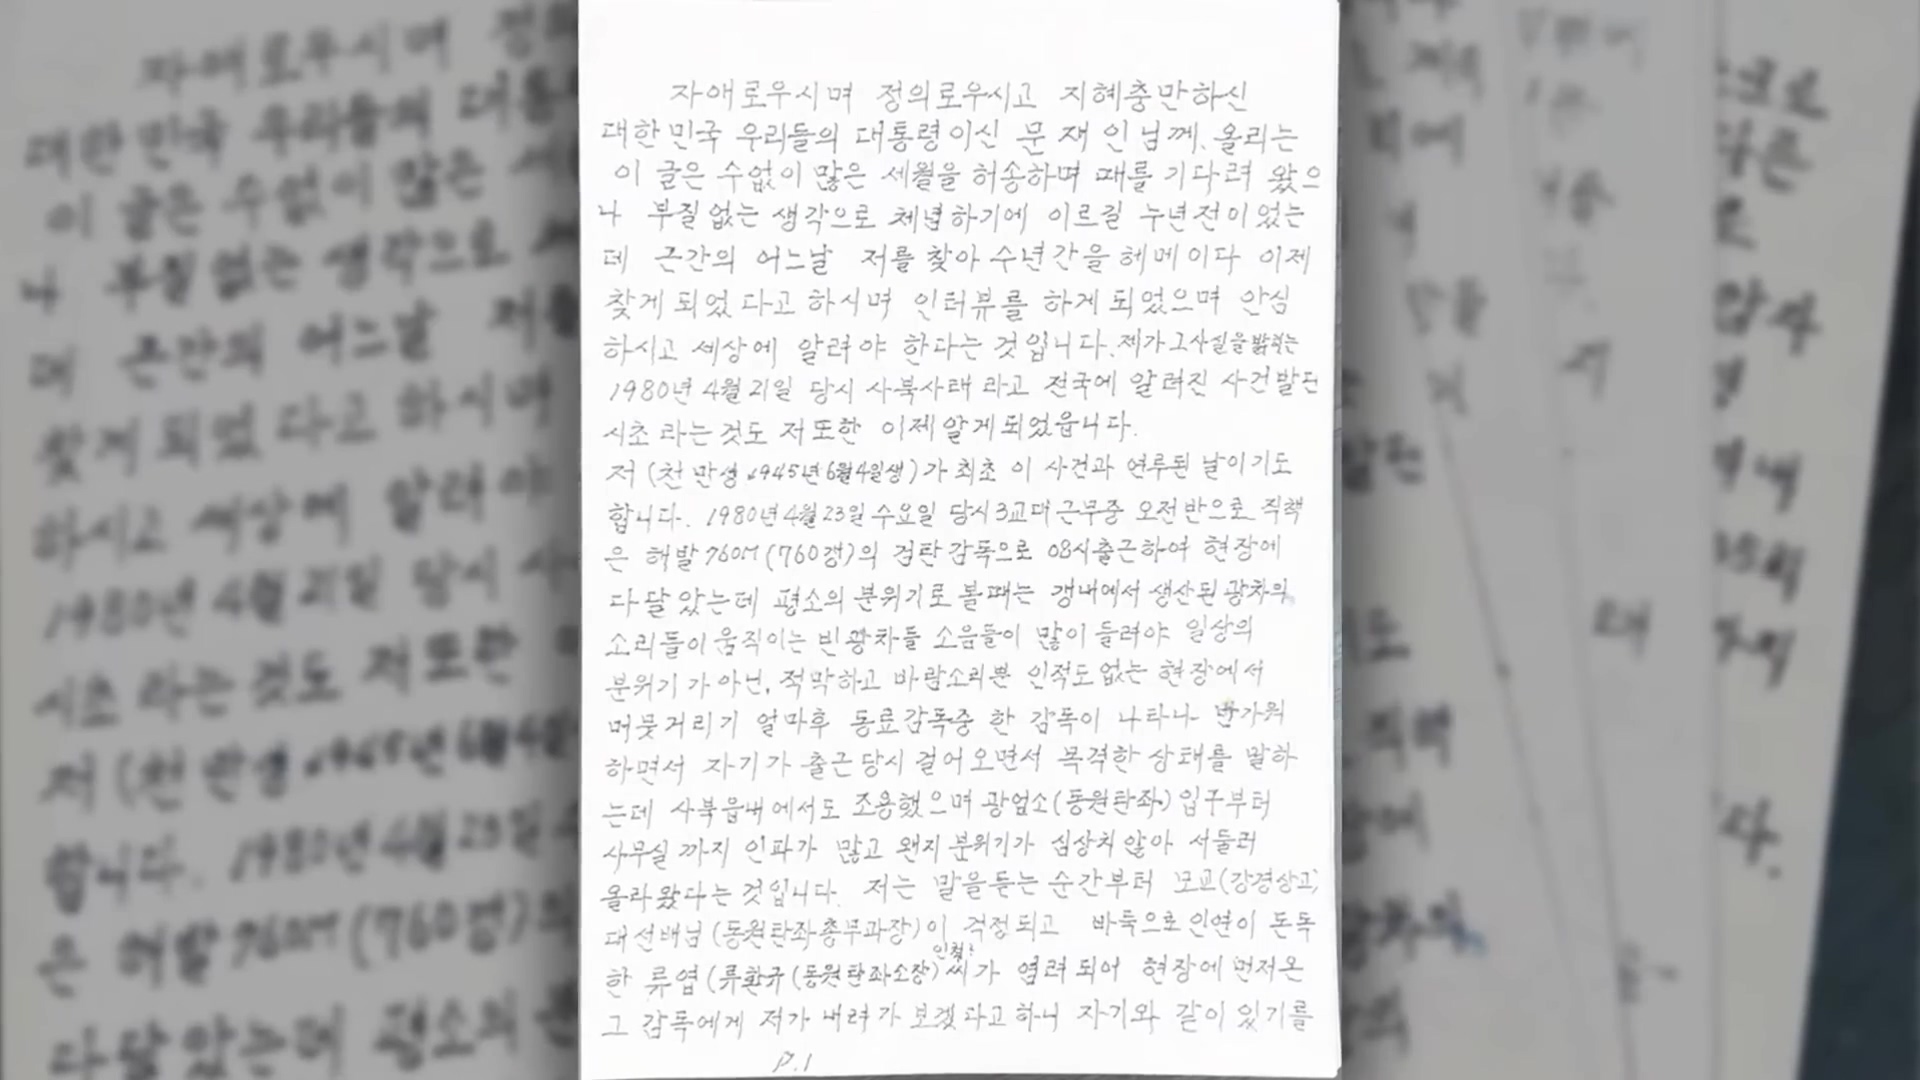 자애로우시며 정의로우시고 지혜충만하신
대한민국 우리들의 대통령이신 문 재 인 님께. 올리는
이 글은 수없이 많은 세월을 허송하며 때를 기다려 왔으
나 부질없는 생각으로 체념하기에 이르길 누년전이었는
데 근간의 어느날 저를 찾아 수년간을 헤메이다 이제
찾게 되었다고 하시며 인터뷰를 하게 되었으며 안심
하시고 세상에 알려야 한다는 것입니다. 제가 그사실을 밝히는
1980년 4월 21일 당시 사북사태 라고 전국에 알려진 사건발단
시초 라는것도 저또한 이제 알게되었읍니다.
저 (천만성 1945년 6월 4일생)가 최초 이 사건과 연루된 날이기도
합니다. 1980년 4월 23일 수요일 당시 3교대 근무중 오전반으로 직책
은 해발 760M (760갱)의 검탄감독으로 08시출근하여 현장에
다달았는데 평소의 분위기로 볼때는 갱내에서 생산된 광차의
소리들이 움직이는 빈광차들 소음들이 많이 들려야 일상의
분위기 가 아닌, 적막하고 바람소리뿐 인적도 없는 현장에서
머뭇거리기 얼마후 동료감독중 한 감독이 나타나 반가워
하면서 자기가 출근당시 걸어오면서 목격한 상태를 말하
는데 사북읍내에서도 조용했으며 광업소(동원탄좌) 입구부터
사무실 까지 인파가 많고 왠지 분위기가 심상치 않아 서둘러
올라왔다는 것입니다. 저는 말을듣는 순간부터 모교(강경상고)
대선배님 (동원탄좌총무과장)이 걱정되고 바둑으로 인연이 돈독
한 류엽 (류환규 (동원탄좌소장) 씨가 염려되어 현장에 먼저온
그 감독에게 저가 내려가 보겠다고하니 자기와 같이 있기를
P.1